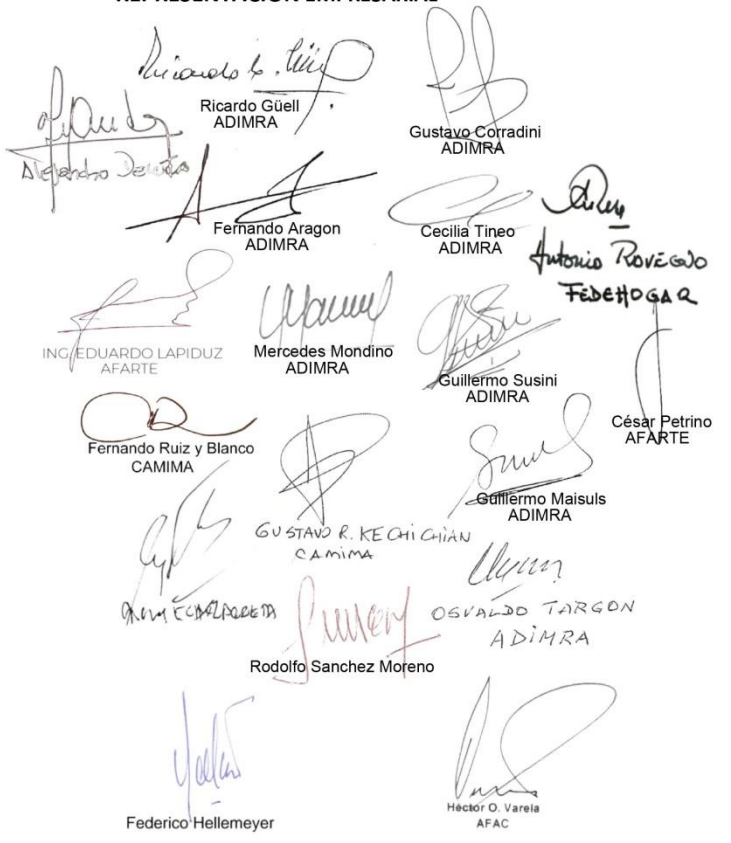 REPRESENTACIÓN EMPRESARIAL
Ricardo Güell
ADIMRA
Gustavo Corradini
ADIMRA
Alejandro
Fernando Aragon
ADIMRA
Cecilia Tineo
ADIMRA
Antonio ROVEGNO
FEDEHOGAR
ING. EDUARDO LAPIDUZ
AFARTE
Mercedes Mondino
ADIMRA
Guillermo Susini
ADIMRA
César Petrino
AFARTE
Fernando Ruiz y Blanco
CAMIMA
Guillermo Maisuls
ADIMRA
GUSTAVO R. KECHICHIAN
CAMIMA
OSVALDO TARGON
ADIMRA
Rodolfo Sanchez Moreno
Federico Hellemeyer
Héctor O. Varela
AFAC